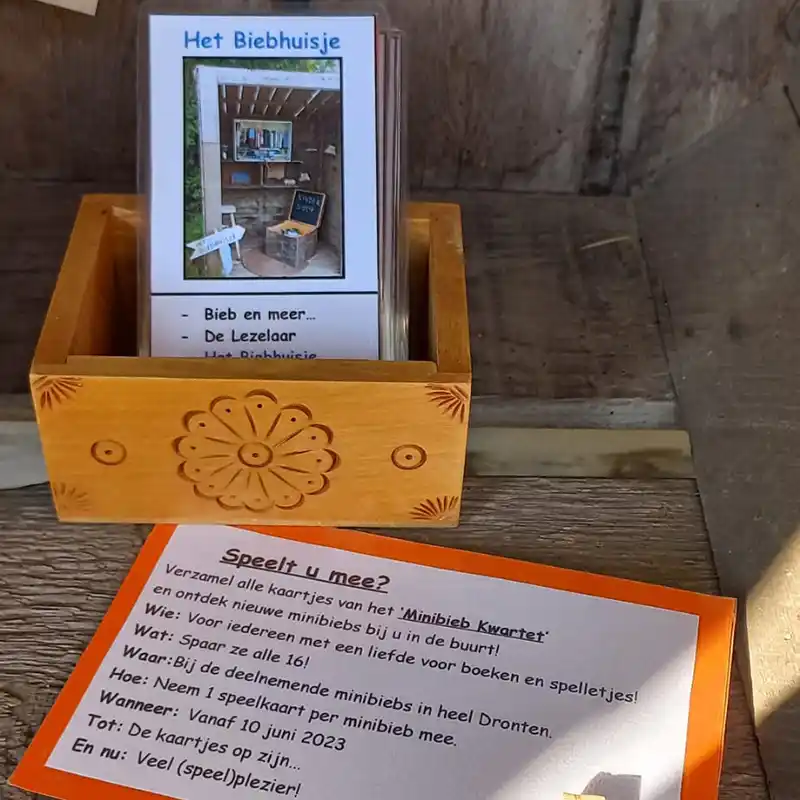 Het Biebhuisje
- Bieb en meer...
- De Lezelaar
Het Biebhuisje
Speelt u mee?
Verzamel alle kaartjes van het 'Minibieb Kwartet'
en ontdek nieuwe minibiebs bij u in de buurt!
Wie: Voor iedereen met een liefde voor boeken en spelletjes!
Wat: Spaar ze alle 16!
Waar: Bij de deelnemende minibiebs in heel Dronten.
Hoe: Neem 1 speelkaart per minibieb mee.
Wanneer: Vanaf 10 juni 2023
Tot: De kaartjes op zijn...
En nu: Veel (speel)plezier!